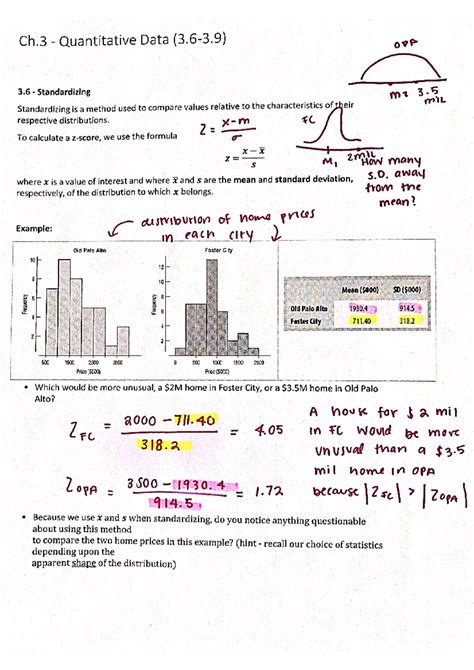 Ch.3 - Quantitative Data (3.6-3.9)
OPA
M2 3.5
MIL
3.6 - Standardizing
Standardizing is a method used to compare values relative to the characteristics of their
respective distributions.
FC
To calculate a z-score, we use the formula
Z = x-m
σ
z = x − x̅
s
M, 2MIL
How many
S.D. away
from the
mean?
where x is a value of interest and where x̅ and s are the mean and standard deviation,
respectively, of the distribution to which x belongs.
distribution of home prices
in each city
Example:
Old Palo Alto
Frequency
10
8
6
4
2
500 1800 2300 3800
Price ($000)
Foster City
Frequency
12
10
8
6
4
2
0 500 1000 1500 2000
Price ($000)
Mean ($000) SD ($000)
Old Palo Alto 1930.4 914.5
Foster City 711.40 318.2
• Which would be more unusual, a $2M home in Foster City, or a $3.5M home in Old Palo
Alto?
Z FC = 2000 - 711.40 = 4.05
318.2
Z OPA = 3500 - 1930.4 = 1.72
914.5
A house for $2 mil
in FC would be more
unusual than a $3.5
mil home in OPA
because |Z FC| > |Z OPA|
• Because we use x̅ and s when standardizing, do you notice anything questionable
about using this method
to compare the two home prices in this example? (hint - recall our choice of statistics
depending upon the
apparent shape of the distribution)